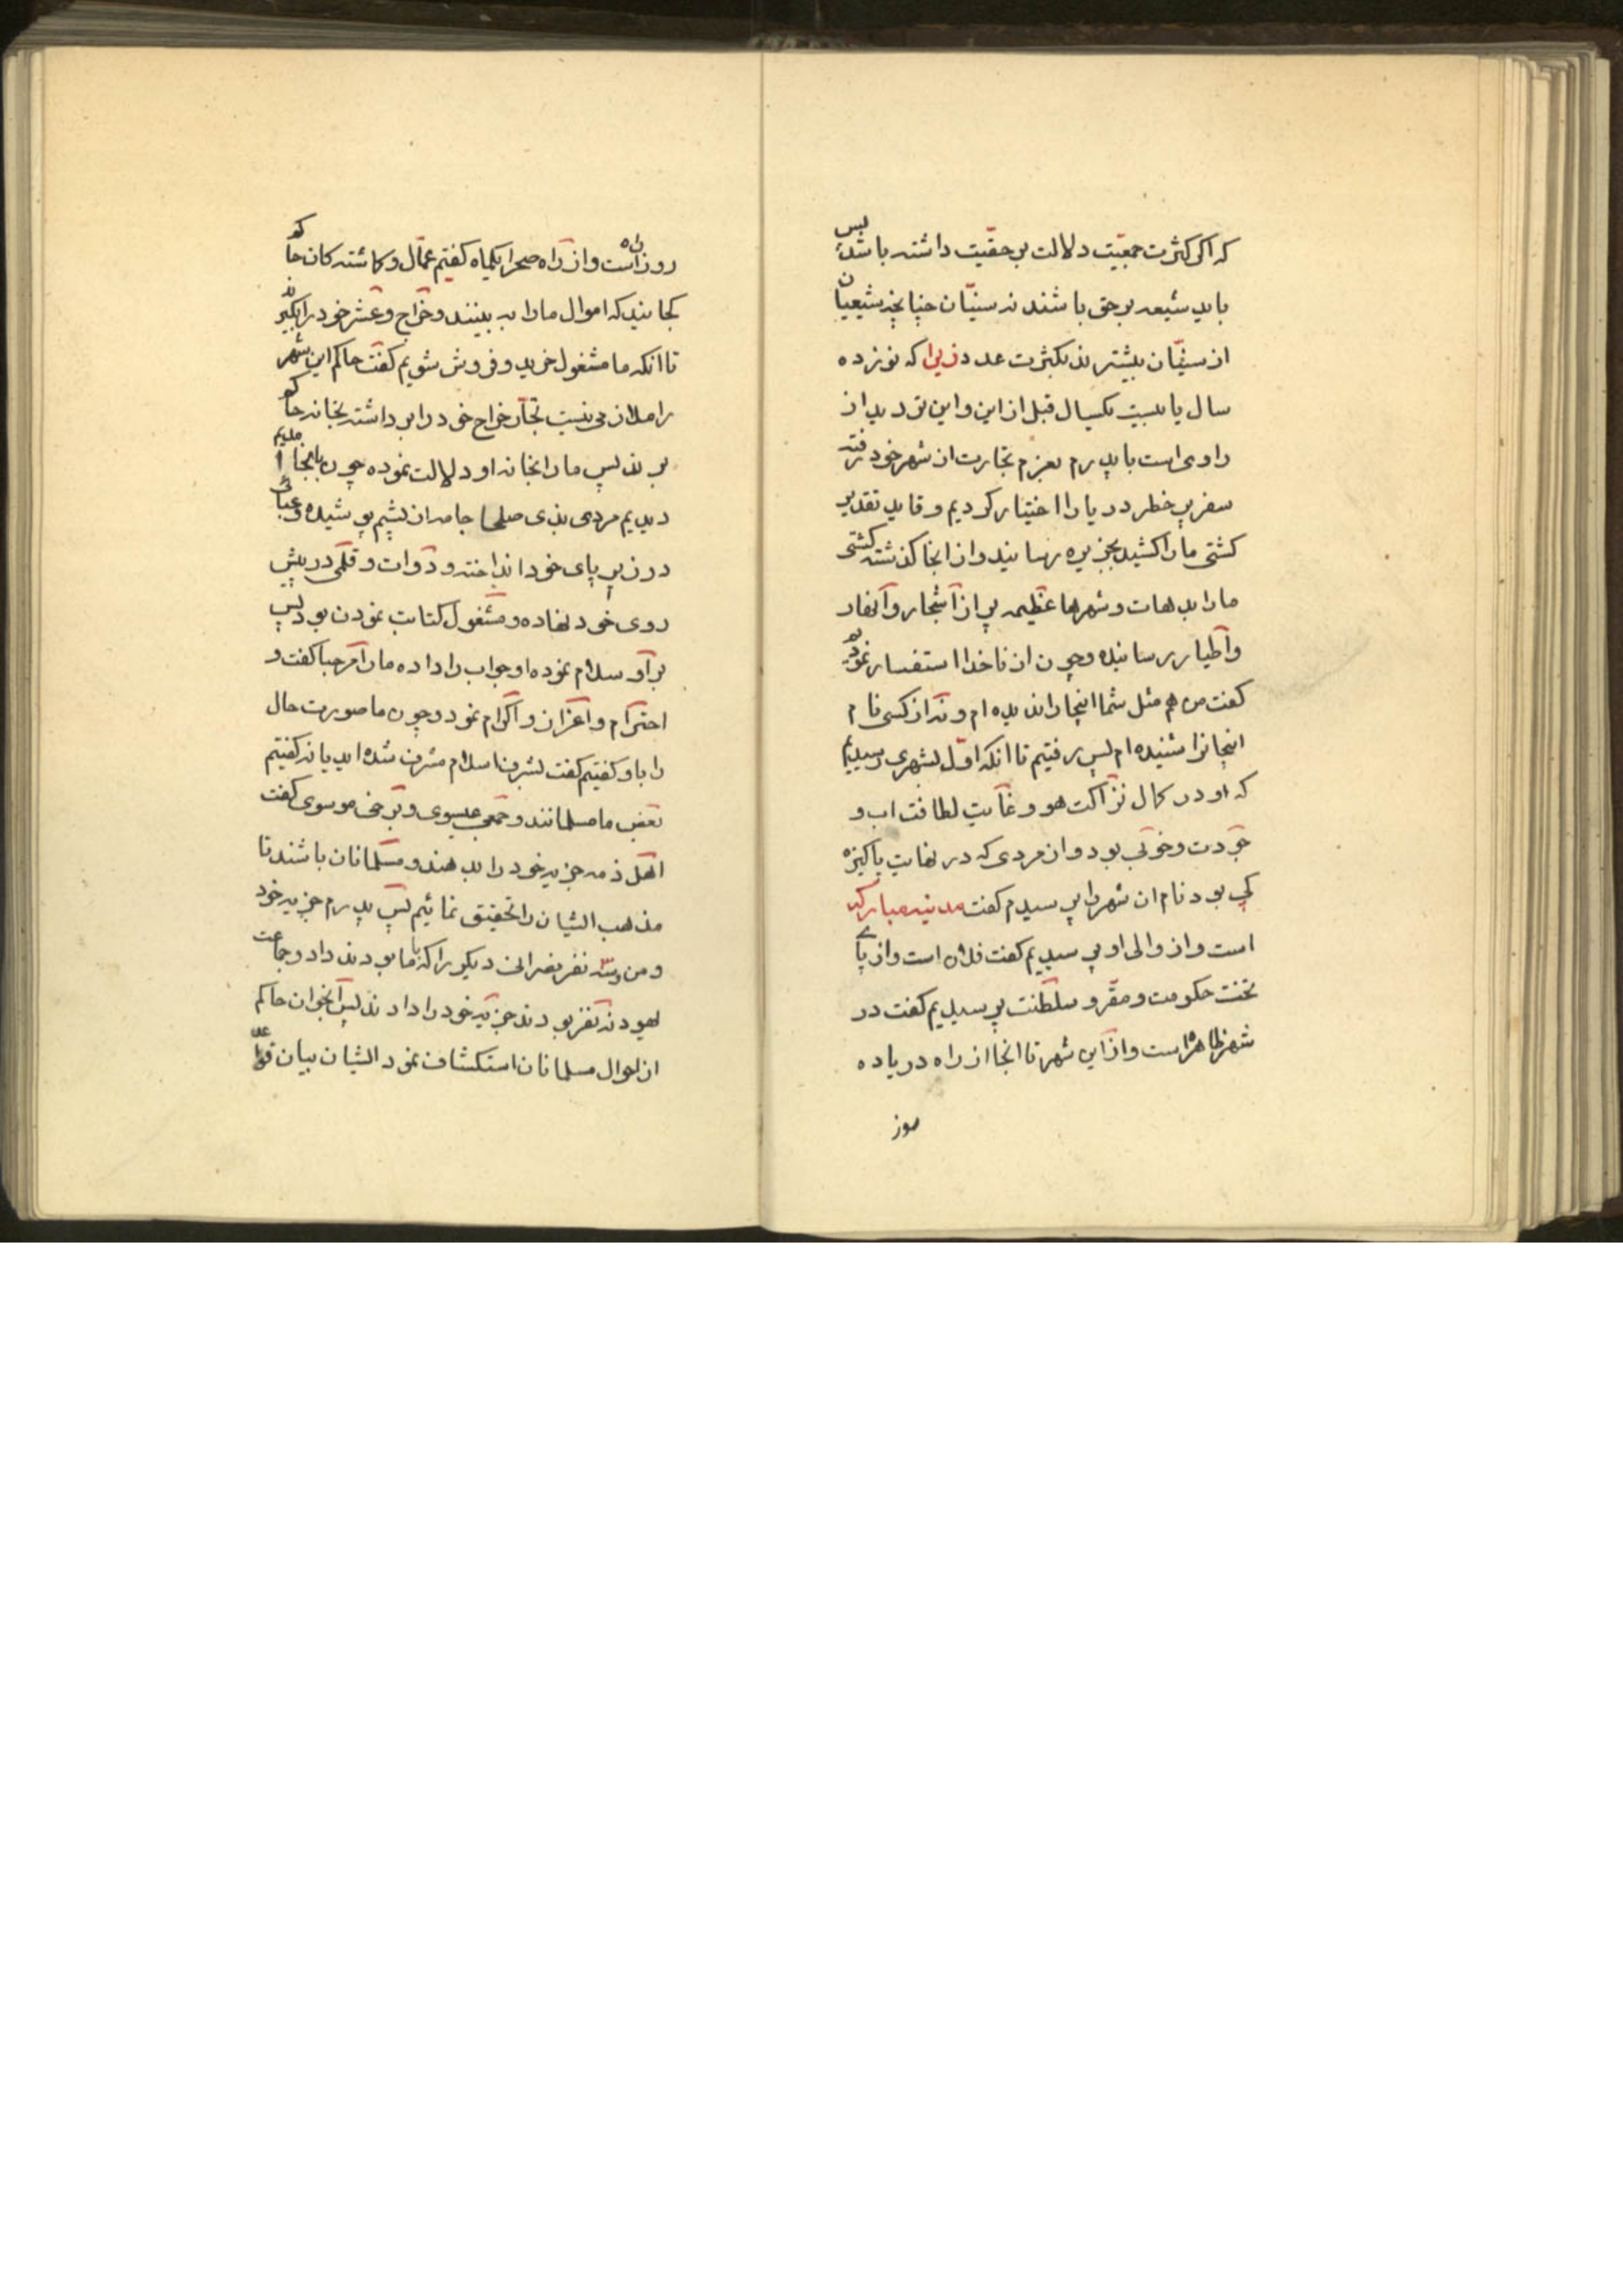 که اگر کثرت جمعیّت دلالت بر حقیّت داشته باشد پس
باید شیعه بر حق باشند نه سنیّان چنانچه شیعیان
از سنیّان بیشترند بکثرت عدد زیرا که نوزده
سال یا بیست یکسال قبل از این و این تردید از
راوی است با پدرم بعزم تجارت از شهر خود رفته
سفر پر خطر دریا را اختیار کردیم و قاید تقدیر
کشتی ما را کشید بجزیره رسانید و از انجا گذشته کشتی
ما را بدهات و شهرها عظیمه پر از اشجار و انهار
و اطیار رسانیده و چون از ناخدا استفسار نمودیم
گفت من هم مثل شما اینجا را ندیده ام و نه از کسی نام
اینجا نرا شنیده ام پس رفتیم تا انکه اوّل بشهری رسیدیم
که او در کمال نزاکت هو و غایت لطافت اب و
جودت و خوبی بود و از مردی که در نهایت پاکیزه
کی بود نام ان شهر را پرسیدم گفت مدینه مبارکه
است و از والی او پرسیدیم گفت فلان است و از پای
تخت حکومت و مقر و سلطنت پرسیدیم گفت در
شهر ظاهره است و از این شهر تا انجا از راه دریا ده
روز
روز راه است و از راه صحرا یکماه گفتم عمّال و گماشته کان حاکم
کجایند که اموال ما را به بینند و خراج و عشر خود را بگیرند
تا انکه ما مشغول خرید و فروش شویم گفت حاکم این شهر
را ملازمی نیست تجّار خراج خود را برداشته بخانه حاکم
برند پس ما را بخانه او دلالت نموده چون بانجا امدیم
دیدیم مردی بزی صلحا جامه از پشم پوشیده و عبائی
در زیر پای خود انداخته و دوات و قلمی در پیش
روی خود نهاده و مشغول کتابت نمودن بود پس
بر او سلام نموده او جواب را داده ما را مرحبا گفت و
احترام و اعزاز و اکرام نمود و چون ما صورت حال
را با و گفتیم گفت بشرف اسلام مشرف شده اید یا نه گفتیم
بعض ما مسلمانند و جمعی عیسوی و برخی موسوی گفت
اهل ذمه جزیه خود را بدهند و مسلمانان باشند تا
مذهب ایشان را تحقیق نمائیم پس پدرم جزیه خود
و من و سه نفر نصرانی دیگر را که با ما بودند داد و جماعت
یهود نه نفر بودند جزیه خود را دادند پس انجوان حاکم
از احوال مسلمانان استکشاف نمود ایشان بیان قواعد